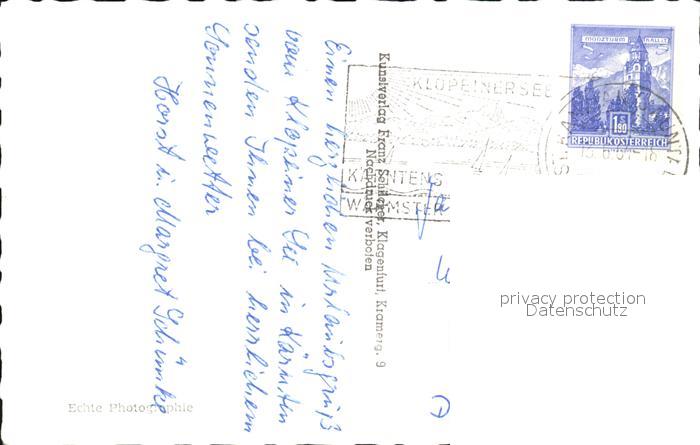 Einen herzlichen Urlaubsgruß
vom Klopeiner See in Kärnten
senden Ihnen bei herrlichem
Sonnenwetter
Horst u. Margret
Echte Photographie
Kunstverlag Franz Schilcher, Klagenfurt, Kramerg. 9
Nachdruck verboten
KLOPEINERSEE
KÄRNTENS
WÄRMSTER
MÜNZTURM HALL I.T.
1.50
REPUBLIK ÖSTERREICH
privacy protection
Datenschutz